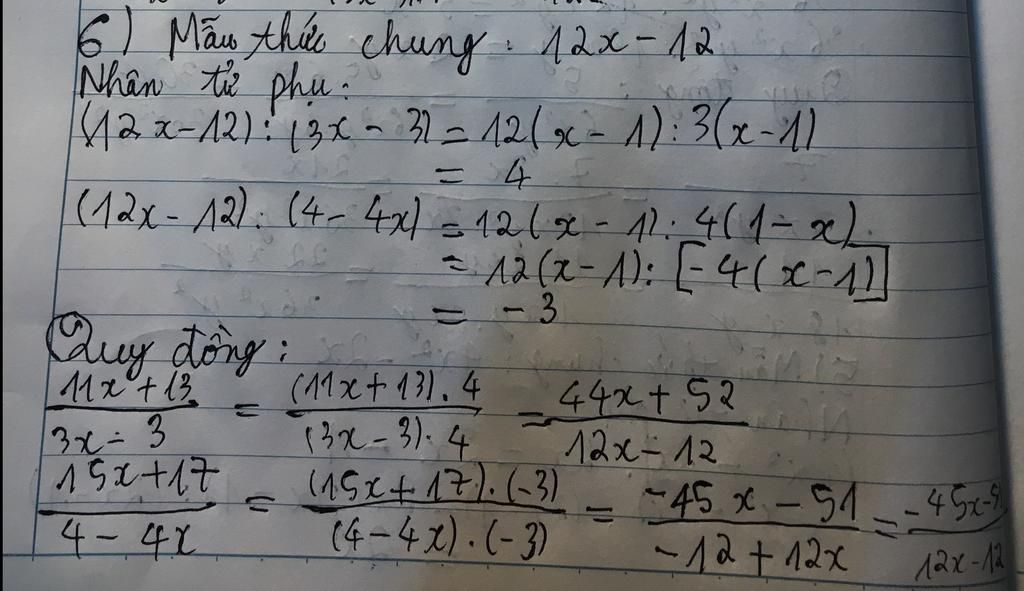 6) Mẫu thức chung: 12x - 12
Nhân tử phụ:
(12x - 12) : (3x - 3) = 12(x - 1) : 3(x - 1)
= 4
(12x - 12) : (4 - 4x) = 12(x - 1) : 4(1 - x)
= 12(x - 1) : [-4(x - 1)]
= -3
Quy đồng:
(11x + 13)/(3x - 3) = ((11x + 13).4)/((3x - 3).4) = (44x + 52)/(12x - 12)
(15x + 17)/(4 - 4x) = ((15x + 17).(-3))/((4 - 4x).(-3)) = (-45x - 51)/(-12 + 12x) = (-45x - 51)/(12x - 12)